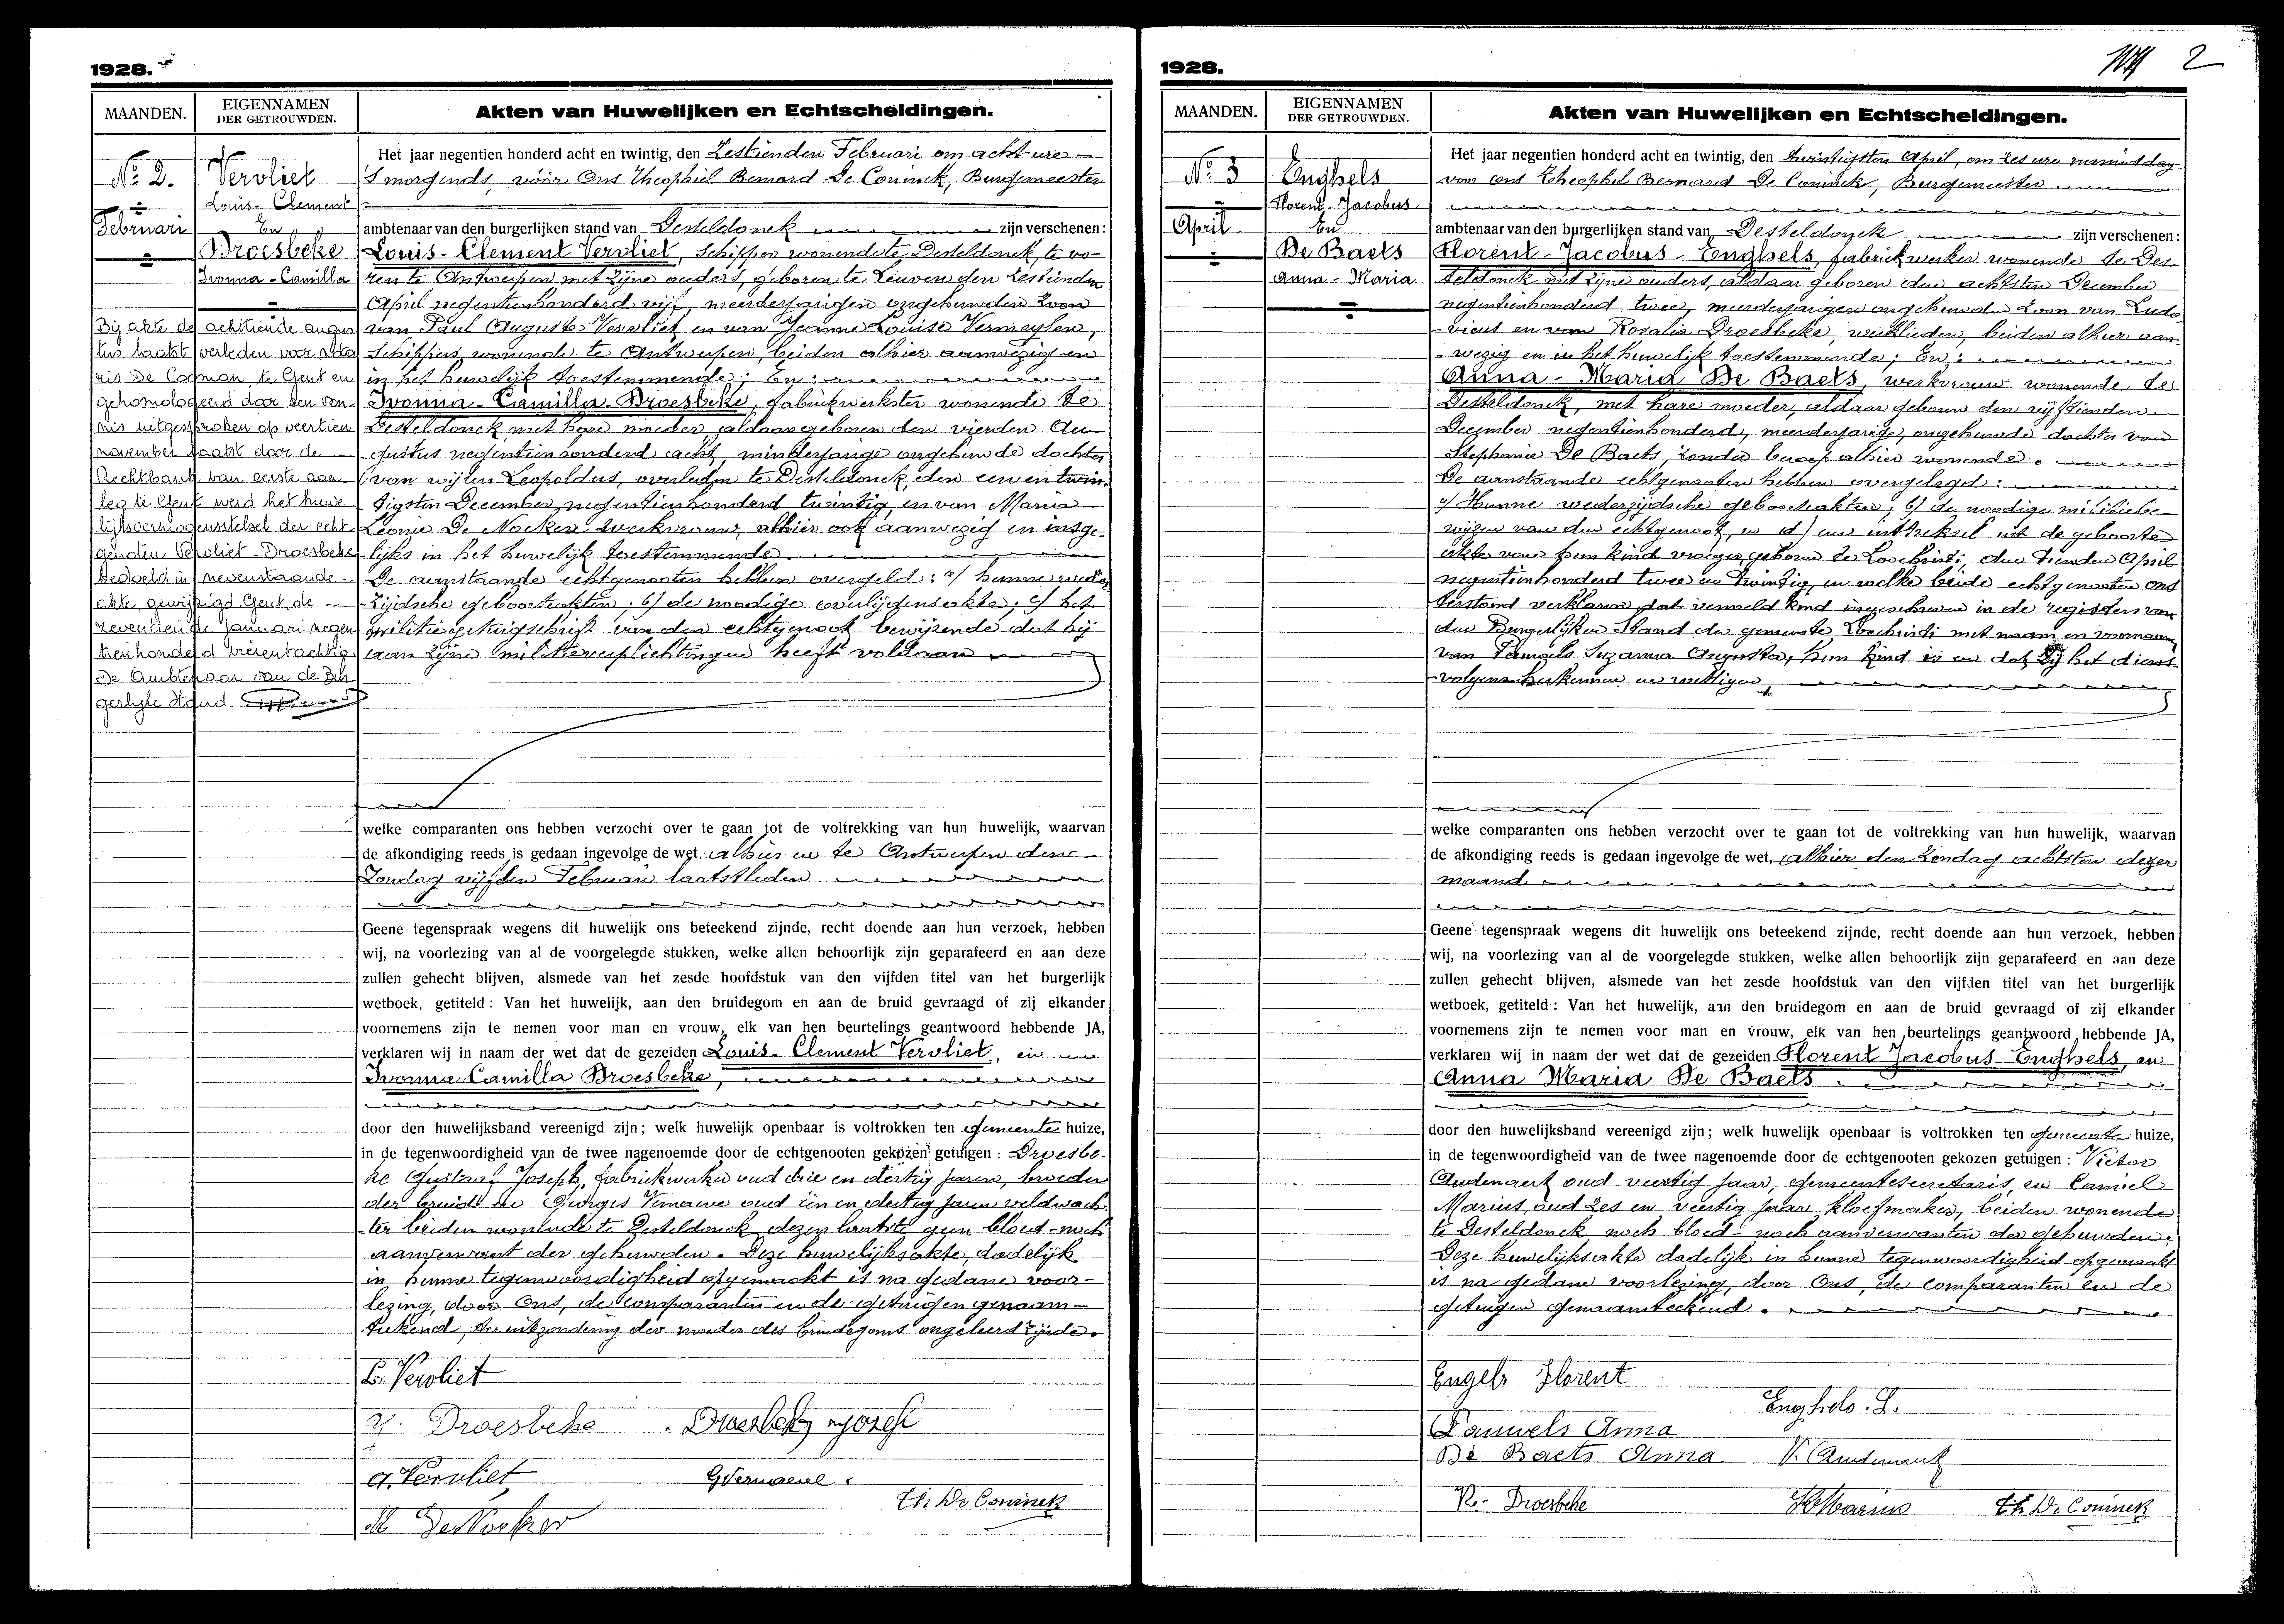 1928.
MAANDEN.
EIGENNAMEN
DER GETROUWDEN.
Akten van Huwelijken en Echtscheidingen.
N.º 2.
Februari
Vervliet
Louis-Clement
En
Droesbeke
Ivonna-Camilla
Bij akte de achttiende augus
tus laatst verleden voor nota
ris De Cagman, te Gent en
gehomologeerd door een von
nis uitgesproken op veertien
november laatst door de
Rechtbank van eerste aan
leg te Gent werd het huwe
lijksvermogensstelsel der echt
genoten Vervliet-Droesbeke
bedoeld in nevenstaande
akte, gewijzigd. Gent, de
zeventiende januari negen
tienhonderd vierentachtig
De Ambtenaar van de Bur
gerlijke Stand.
Het jaar negentien honderd acht en twintig, den Zestienden Februari om acht ure
'S morgends, vóór Ons Theophiel Bernard De Coninck, Burgemeester
ambtenaar van den burgerlijken stand van Desteldonck zijn verschenen:
Louis-Clement Vervliet, Schipper wonende te Desteldonck, te vo-
ren te Antwerpen met zijne ouders, geboren te Leuven den Zestienden
April negentienhonderd vijf, meerderjarigen ongehuwden zoon
van Paul Auguste Vervliet en van Jeanne Louise Vermeylen,
Schippers, wonende te Antwerpen, beiden alhier aanwezig en
in het huwelijk toestemmende; En:
Ivonna-Camilla-Droesbeke, fabriekwerkster wonende te
Desteldonck met hare moeder, aldaar geboren den vierden Au-
gustus negentienhonderd acht, minderjarige ongehuwde dochter
van wijlen Leopoldus, overleden te Desteldonck, den een en twin-
tigsten December, negentienhonderd twintig, en van Maria
Leonie De Nocker werkvrouw, alhier ook aanwezig en insge-
lijks in het huwelijk toestemmende.
De aanstaande echtgenooten hebben overgeld: a/ hunne weder-
zijdsche geboorteakten; b/ de noodige overlijdensakte; c/ het
militiegetuigschrift van den echtgenoot bewijzende dat hij
aan zijne militieverplichtingen heeft voldaan
welke comparanten ons hebben verzocht over te gaan tot de voltrekking van hun huwelijk, waarvan
de afkondiging reeds is gedaan ingevolge de wet, alhier en te Antwerpen den
Zondag vijfden Februari laatstleden
Geene tegenspraak wegens dit huwelijk ons beteekend zijnde, recht doende aan hun verzoek, hebben
wij, na voorlezing van al de voorgelegde stukken, welke allen behoorlijk zijn geparafeerd en aan deze
zullen gehecht blijven, alsmede van het zesde hoofdstuk van den vijfden titel van het burgerlijk
wetboek, getiteld: Van het huwelijk, aan den bruidegom en aan de bruid gevraagd of zij elkander
voornemens zijn te nemen voor man en vrouw, elk van hen beurtelings geantwoord hebbende JA,
verklaren wij in naam der wet dat de gezeiden Louis-Clement Vervliet, en
Ivonna Camilla Droesbeke,
door den huwelijksband vereenigd zijn; welk huwelijk openbaar is voltrokken ten gemeente huize,
in de tegenwoordigheid van de twee nagenoemde door de echtgenooten gekozen getuigen: Droesbe-
ke Gustaaf Joseph, fabriekwerker oud drie en dertig jaren, broeder
der bruid en Georges Vernaeve oud een en dertig jaren veldwach-
ter beiden wonende te Desteldonck dezen laatste geen bloed-noch
aanverwant der gehuwden. Deze huwelijksakte, dadelijk
in hunne tegenwoordigheid opgemaakt is na gedane voor-
lezing, door Ons, de comparanten en de getuigen genaam-
tekend, ter uitzondering der moeder des bruidegoms ongeleerd zijnde.
L. Vervliet
Y. Droesbeke
Droesbeke Jozef
A. Vervliet
G Vernaeve
Th. De Coninck
M De Nocker
1928.
2
MAANDEN.
EIGENNAMEN
DER GETROUWDEN.
Akten van Huwelijken en Echtscheidingen.
N.º 3
April
Enghels
Florent-Jacobus
En
De Baets
Anna-Maria
Het jaar negentien honderd acht en twintig, den twintigsten April, om zes ure namiddag
voor ons Theophiel Bernard De Coninck, Burgemeester
ambtenaar van den burgerlijken stand van Desteldonck zijn verschenen:
Florent-Jacobus-Enghels, fabriekwerker wonende te Des-
teldonck met zijne ouders, aldaar geboren den achtsten December
negentienhonderd twee, meerderjarigen ongehuwde zoon van Ludo
vicus en van Rosalia Droesbeke, werklieden, beiden alhier aan-
wezig en in het huwelijk toestemmende; En:
Anna-Maria De Baets, werkvrouw wonende te
Desteldonck, met hare moeder, aldaar geboren den vijftienden
December negentienhonderd, meerderjarige, ongehuwde dochter van
Stephanie De Baets, zonder beroep alhier wonende.
De aanstaande echtgenooten hebben overgelegd:
a/ Hunne wederzijdsche geboorteakten; b/ de noodige militiebe-
wijzen van den echtgenoot, en d/ een uittreksel uit de geboorte
akte van hun kind vroeger geboren te Loochristi, den tienden April
negentienhonderd twee en twintig, en welke beide echtgenooten ons
terstond verklaren dat vermeld kind ingeschreven in de registers van
den Burgerlijken Stand der gemeente Loochristi met naam en voornaam
van Pauwels Suzanna Augusta, hun kind is en dat zij het diens-
volgens herkennen en wettigen,
welke comparanten ons hebben verzocht over te gaan tot de voltrekking van hun huwelijk, waarvan
de afkondiging reeds is gedaan ingevolge de wet, alhier den Zondag achtsten dezer
maand
Geene tegenspraak wegens dit huwelijk ons beteekend zijnde, recht doende aan hun verzoek, hebben
wij, na voorlezing van al de voorgelegde stukken, welke allen behoorlijk zijn geparafeerd en aan deze
zullen gehecht blijven, alsmede van het zesde hoofdstuk van den vijfden titel van het burgerlijk
wetboek, getiteld: Van het huwelijk, aan den bruidegom en aan de bruid gevraagd of zij elkander
voornemens zijn te nemen voor man en vrouw, elk van hen beurtelings geantwoord hebbende JA,
verklaren wij in naam der wet dat de gezeiden Florent Jacobus Enghels, en
Anna Maria De Baets
door den huwelijksband vereenigd zijn; welk huwelijk openbaar is voltrokken ten gemeente huize,
in de tegenwoordigheid van de twee nagenoemde door de echtgenooten gekozen getuigen: Victor
Audenaert oud veertig jaar, gemeentesecretaris, en Camiel
Marius, oud zes en veertig jaar kloefmaker, beiden wonende
te Desteldonck noch bloed- noch aanverwanten der gehuwden.
Deze huwelijksakte dadelijk in hunne tegenwoordigheid opgemaakt
is na gedane voorlezing, door Ons, de comparanten en de
getuigen genaamteekend.
Engels Florent
Enghels. L.
Pauwels Anna
De Baets Anna
V. Audenaert
R. Droesbeke
Marius
Th. De Coninck